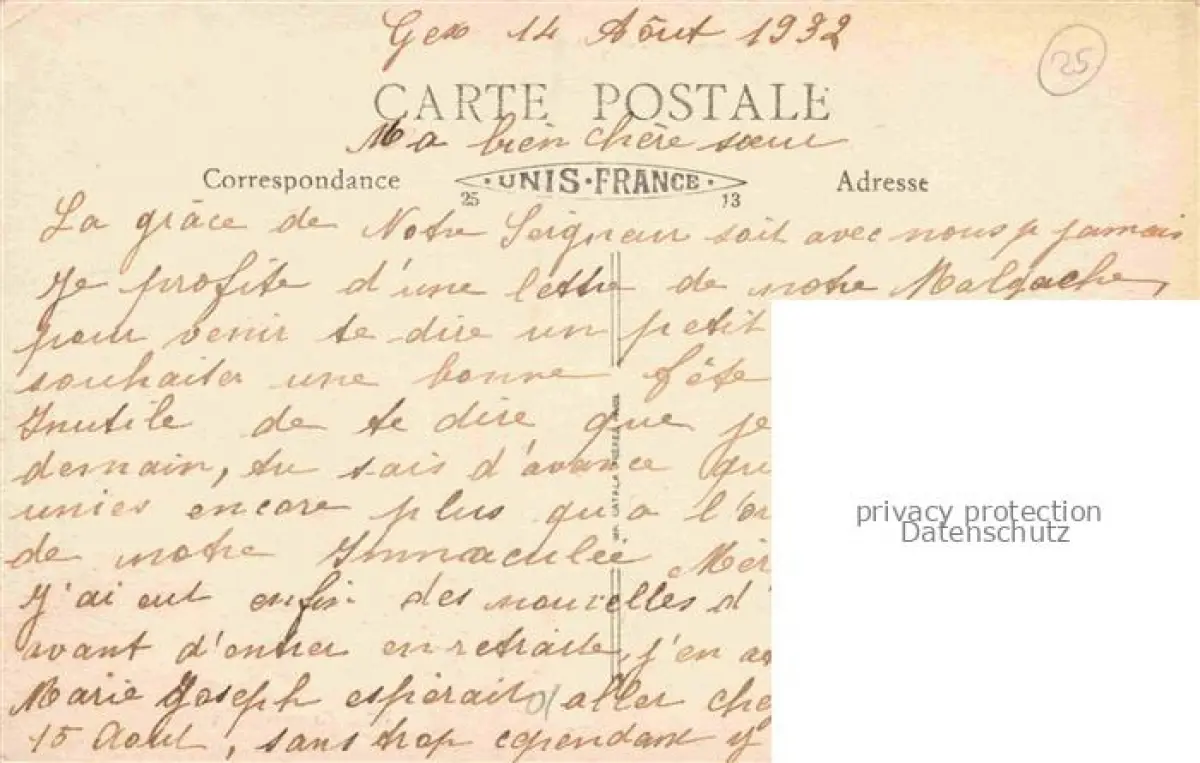 Gex 14 Aôut 1932
25
CARTE POSTALE
Ma bien chère sœur
Correspondance
UNIS·FRANCE
Adresse
25
13
La grâce de Notre Seigneur soit avec nous p jamais
Je profite d'une lettre de notre Malgache,
pour venir te dire un petit
souhaiter une bonne fête
Inutile de te dire que je
demain, tu sais d'avance qu
unies encore plus qu'a l'or
de notre Immaculée Mèr
J'ai eut enfin des nouvelles d'
avant d'entrer en retraite, j'en a
Marie Joseph espèrait aller che
15 Aout, sans trop cependant y
IMP. CATALA FRÈRES PARIS
privacy protection
Datenschutz